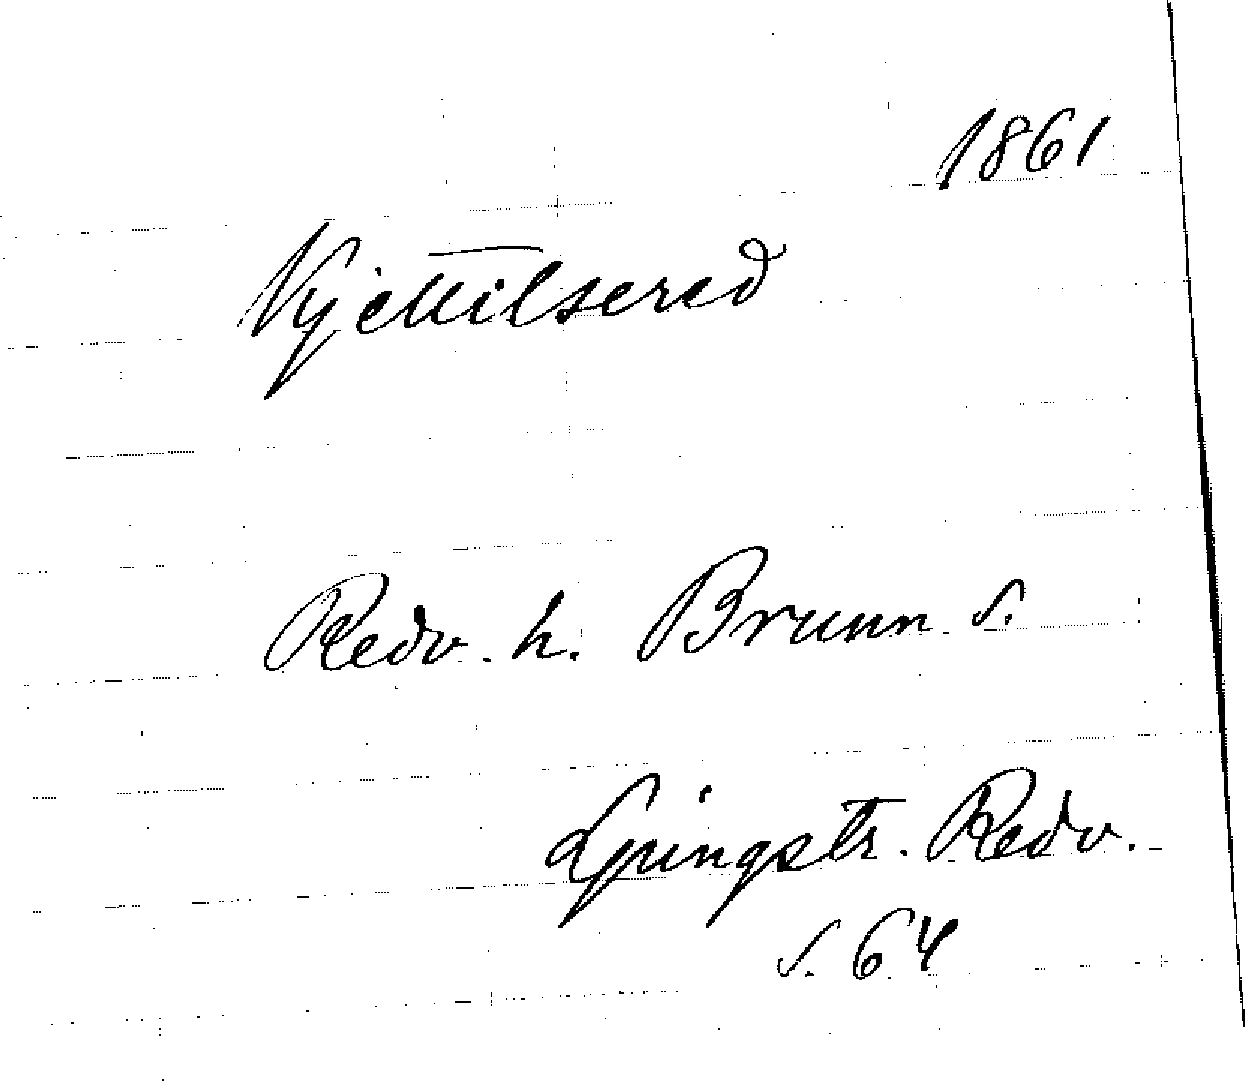 1861
Kjettilsered
Redv. h. Brunn s.
Ljungstr. Redv.
s. 64